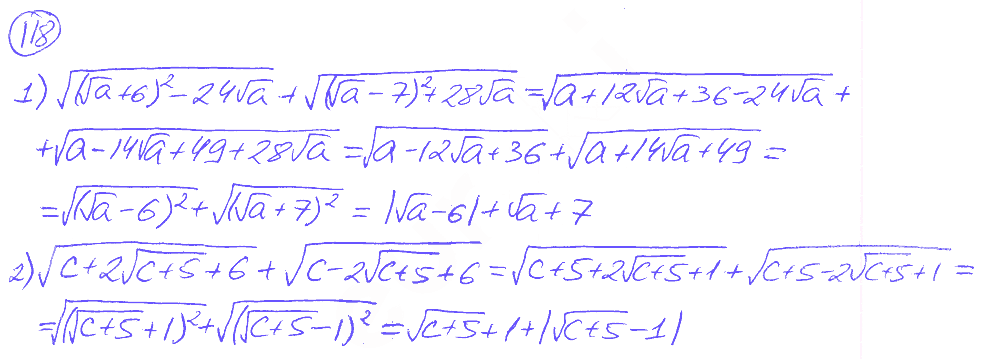 118
1) √((√a+6)²-24√a) + √((√a-7)²+28√a) = √(a+12√a+36-24√a) +
+√(a-14√a+49+28√a) = √(a-12√a+36) + √(a+14√a+49) =
= √((√a-6)²) + √((√a+7)²) = |√a-6| + √a+7
2) √(c+2√(c+5)+6) + √(c-2√(c+5)+6) = √(c+5+2√(c+5)+1) + √(c+5-2√(c+5)+1) =
= √((√(c+5)+1)²) + √((√(c+5)-1)²) = √(c+5)+1+|√(c+5)-1|